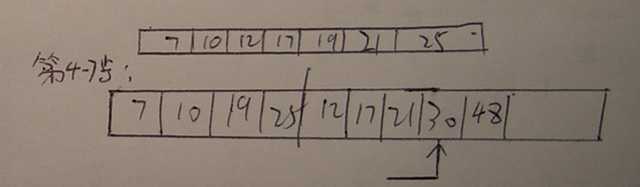 7 10 12 17 19 21 25
第4-7步:
7 10 19 25 12 17 21 30 48